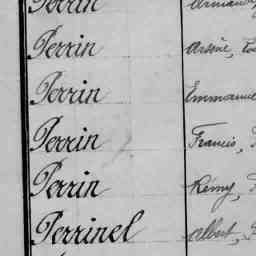 Perrin
Perrin Arsène,
Perrin Emmanuel
Perrin Francis,
Perrin Rémy,
Perrinel Albert,